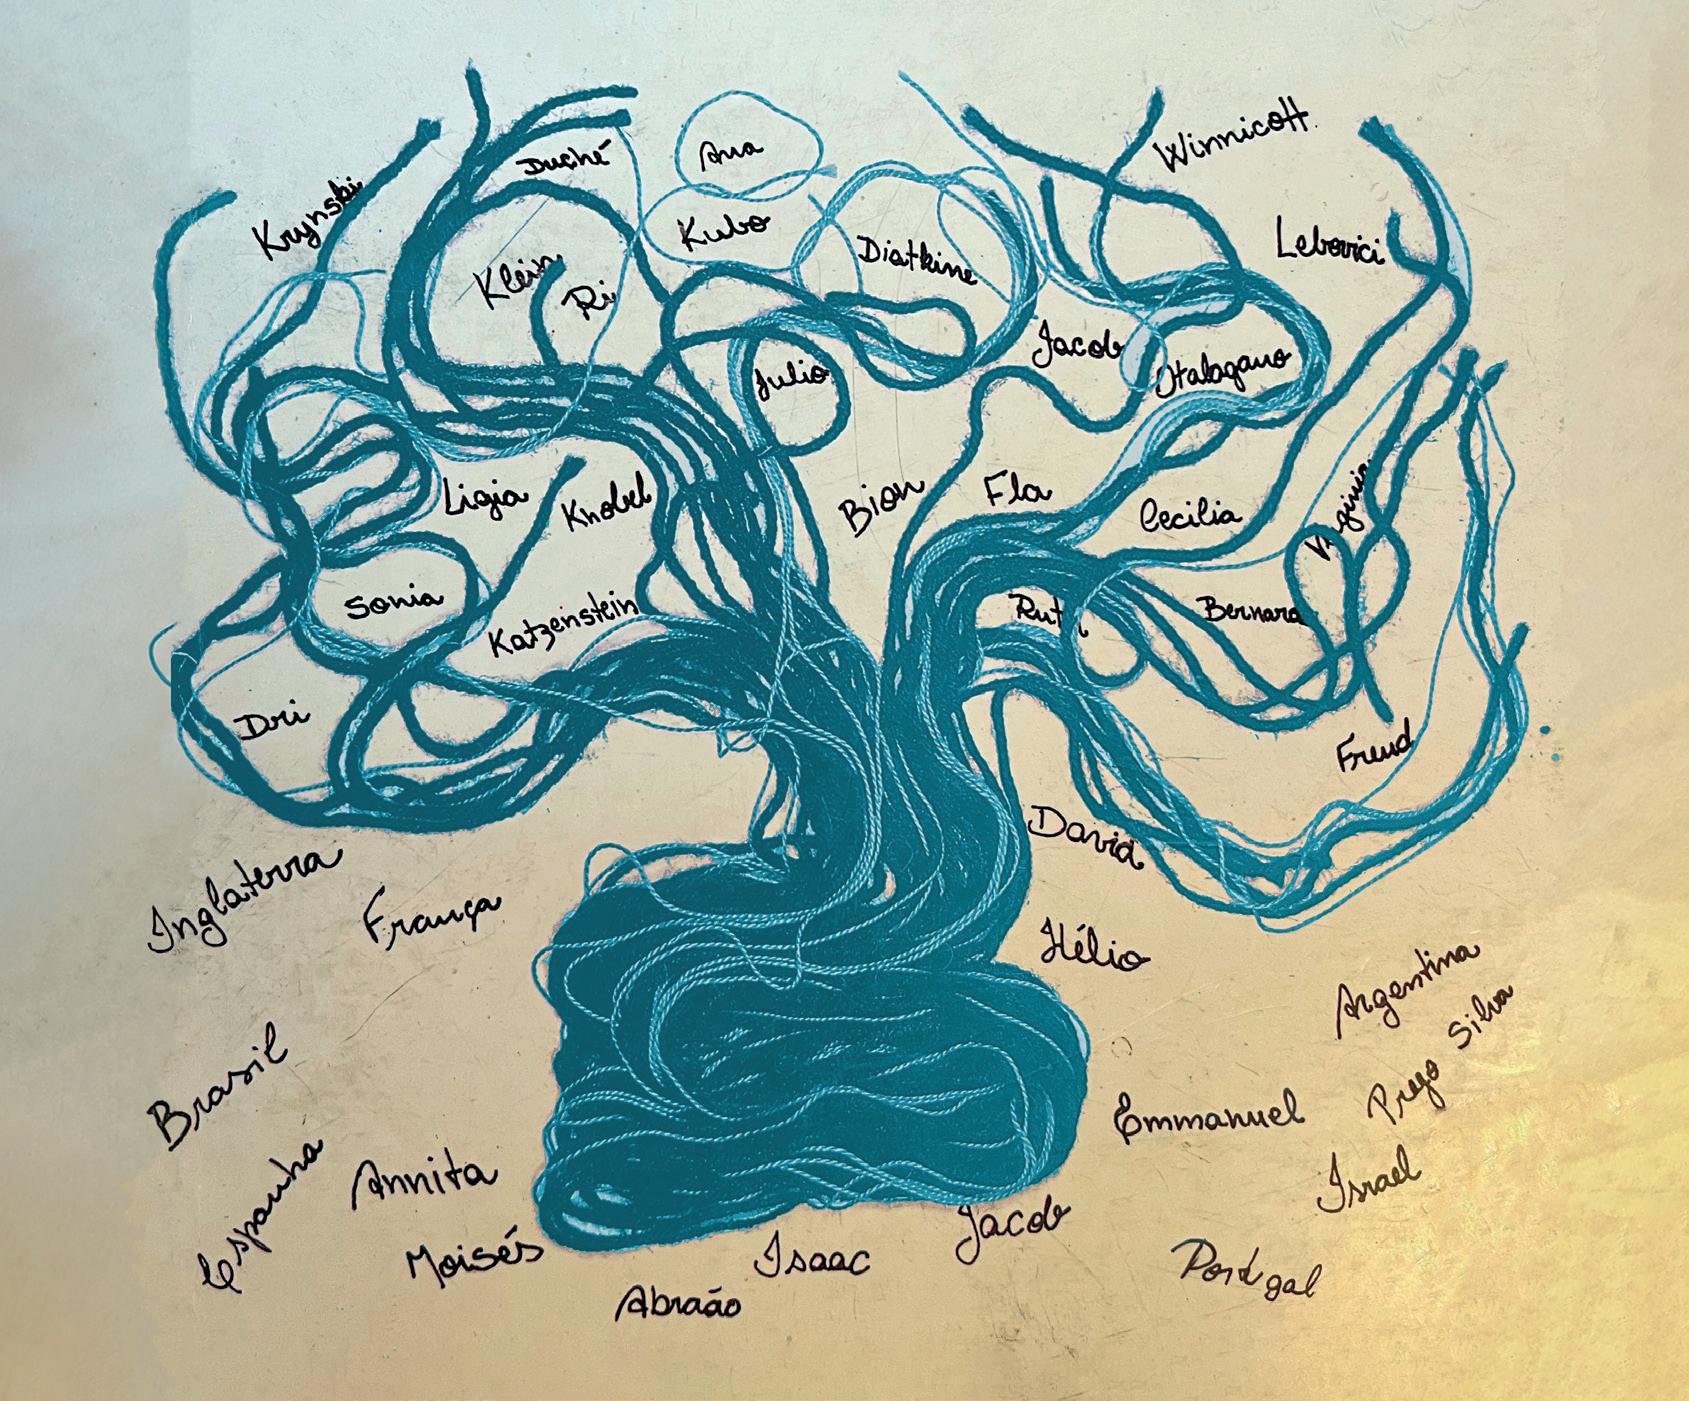 Winnicott
Duché
Ana
Krynski
Kubo
Lebovici
Diatkine
Klein
Ri
Jacob
Julio
Ligia
Fla
Bion
Knobel
Cecilia
Virginia
Sonia
Katzenstein
Ruth
Bernard
Dri
Freud
David
Inglaterra
França
Hélio
Argentina
Silva
Brasil
Emmanuel
Prego
Annita
Israel
Espanha
Moisés
Isaac
Jacob
Portugal
Abraão